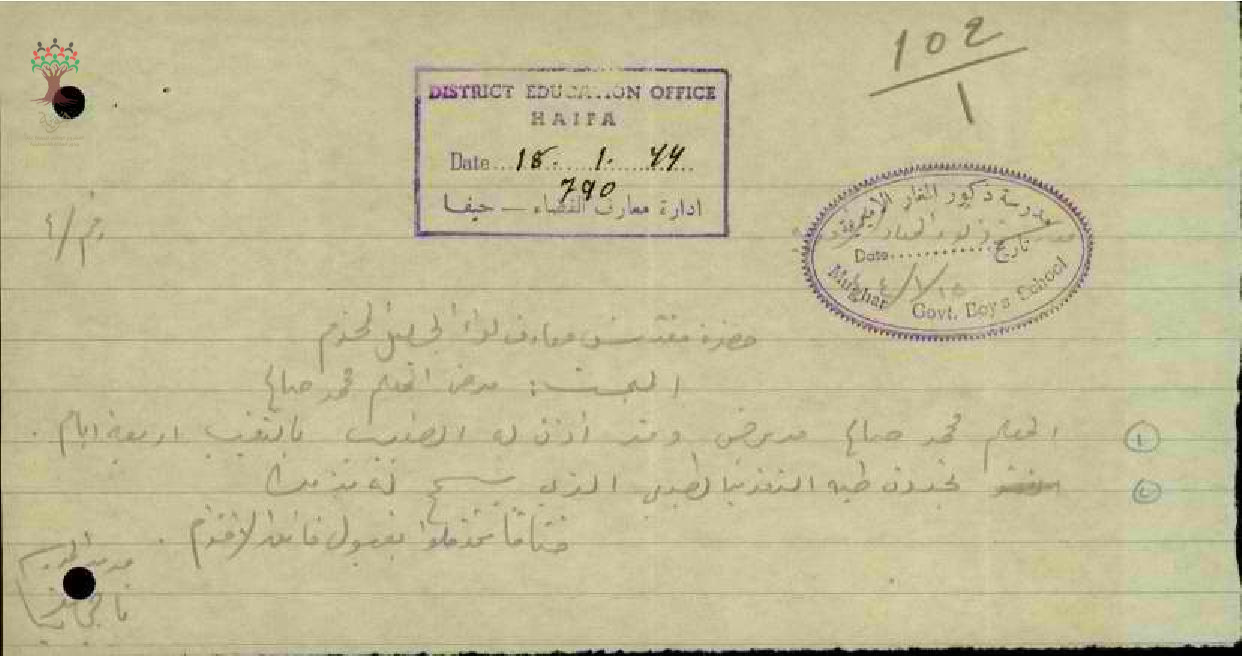 102
1
DISTRICT EDUCATION OFFICE
HAIFA
Date... 18. 1. 44
790
ادارة معارف القضاء — حيفا
مدرسة ذكور المغار الاميرية
Date............تاريخ
١٥/١/٤٤
Mughar Govt. Boys School
حضرة مفتش معارف لواء الجليل المحترم
البحث: مرض المعلم محمد صالح
١ المعلم محمد صالح مريض وقد أذن له الطبيب بالتغيب اربعة ايام.
٢ تجدون طيه التقرير الطبي الذي يسمح له بذلك
ختاماً تفضلوا بقبول فائق الاحترام.
مدير المدرسة